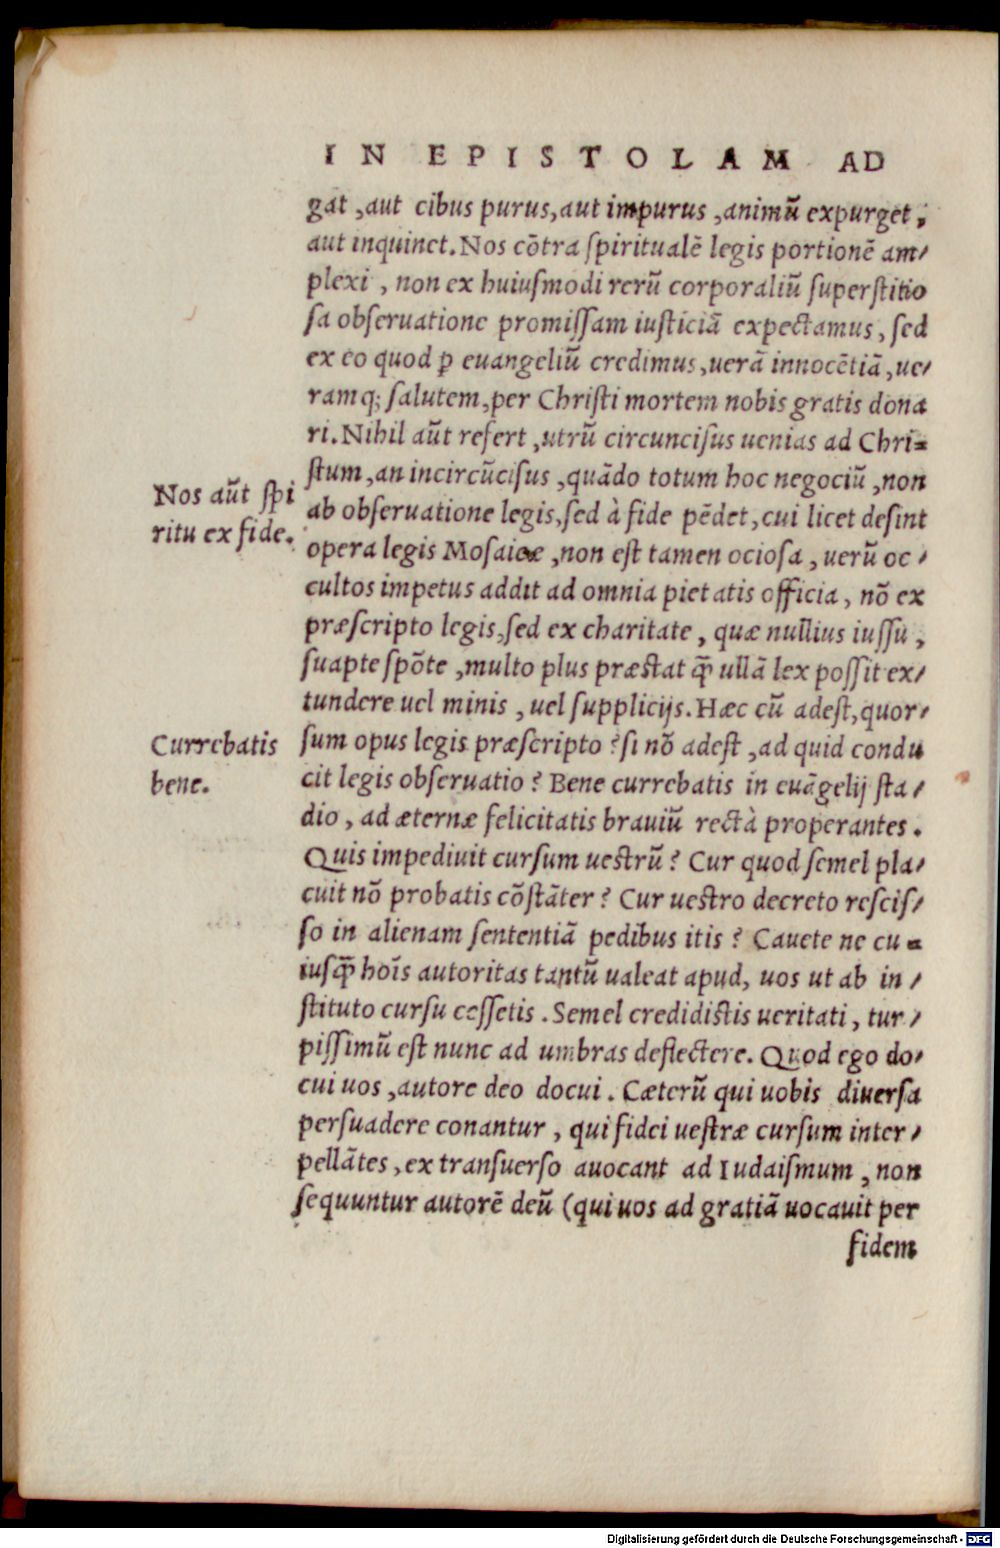 IN EPISTOLAM AD
gat, aut cibus purus, aut impurus, animũ expurget,
aut inquinet. Nos cõtra ſpiritualẽ legis portionẽ am/
plexi, non ex huiuſmodi rerũ corporaliũ ſuperſtitio
ſa obſeruatione promiſſam iuſticiã expectamus, ſed
ex eo quod ꝑ euangeliũ credimus, uerã innocẽtiã, ue/
ramq; ſalutem, per Chriſti mortem nobis gratis dona
ri. Nihil aũt refert, utrũ circunciſus uenias ad Chri=
ſtum, an incircũciſus, quãdo totum hoc negociũ, non
Nos aũt ſpi
ritu ex fide.
ab obſeruatione legis, ſed à fide pẽdet, cui licet deſint
opera legis Moſaicæ, non eſt tamen ocioſa, uerũ oc/
cultos impetus addit ad omnia pietatis officia, nõ ex
præſcripto legis, ſed ex charitate, quæ nullius iuſſu,
ſuapte ſpõte, multo plus præſtat q̃ ullã lex poſſit ex/
tundere uel minis, uel ſupplicijs. Hæc cũ adeſt, quor/
Currebatis
bene.
ſum opus legis præſcripto? ſi nõ adeſt, ad quid condu
cit legis obſeruatio? Bene currebatis in euãgelij ſta/
dio, ad æternæ felicitatis brauiũ rectà properantes.
Quis impediuit curſum ueſtrũ? Cur quod ſemel pla/
cuit nõ probatis cõſtãter? Cur ueſtro decreto reſciſ/
ſo in alienam ſententiã pedibus itis? Cauete ne cu=
iuſq̃ hoĩs autoritas tantũ ualeat apud, uos ut ab in/
ſtituto curſu ceſſetis. Semel credidiſtis ueritati, tur/
piſſimũ eſt nunc ad umbras deflectere. Quod ego do/
cui uos, autore deo docui. Cæterũ qui uobis diuerſa
perſuadere conantur, qui fidei ueſtræ curſum inter/
pellãtes, ex tranſuerſo auocant ad Iudaiſmum, non
ſequuntur autorẽ deũ (qui uos ad gratiã uocauit per
fidem
Digitalisierung gefördert durch die Deutsche Forschungsgemeinschaft - DFG